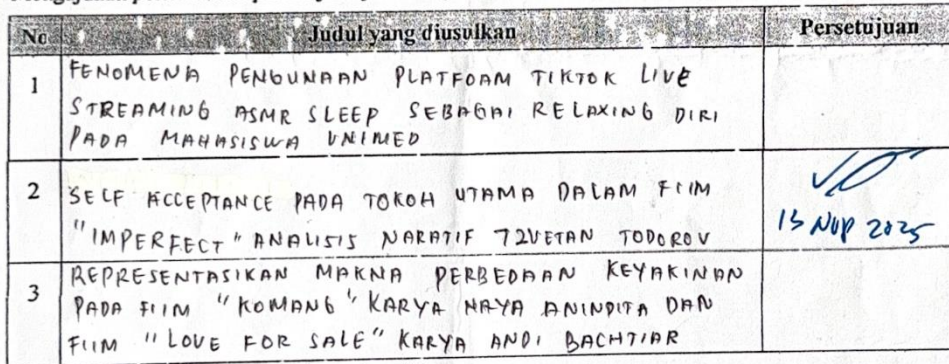 No Judul yang diusulkan Persetujuan
1 FENOMENA PENGUNAAN PLATFOAM TIKTOK LIVE
STREAMING ASMR SLEEP SEBAGAI RELAXING DIRI
PADA MAHASISWA UNIMED
2 SELF ACCEPTANCE PADA TOKOH UTAMA DALAM FIIM
"IMPERFECT" ANALISIS NARATIF TZVETAN TODOROV
13 NOP 2025
3 REPRESENTASIKAN MAKNA PERBEDAAN KEYAKINAN
PADA FIIM "KOMANG" KARYA NAYA ANINDITA DAN
FIIM "LOVE FOR SALE" KARYA ANDI BACHTIAR